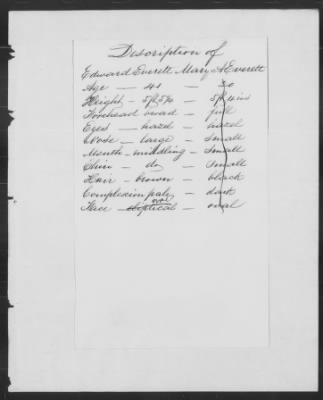 Description of
Edward Everett Mary A Everett
Age — 41 — 30
Height — 5ft 5¾ — 5ft 4 ins
Forehead broad — full
Eyes — hazel — hazel
Nose — large — small
Mouth — middling — small
Chin — do — small
Hair — brown — black
Complexion pale — dark
Face — elliptical oval — oval